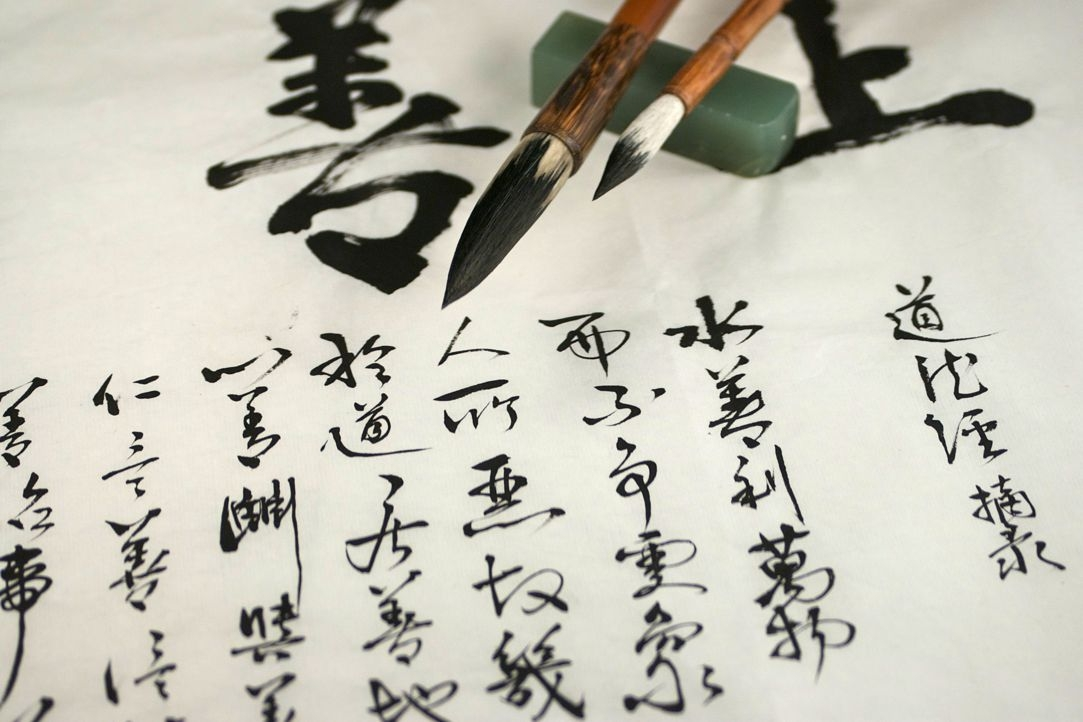 上善
道德经摘录
水善利萬物
而不争處衆
人所惡故幾
於道居善地
心善淵與善
仁言善信
善名事